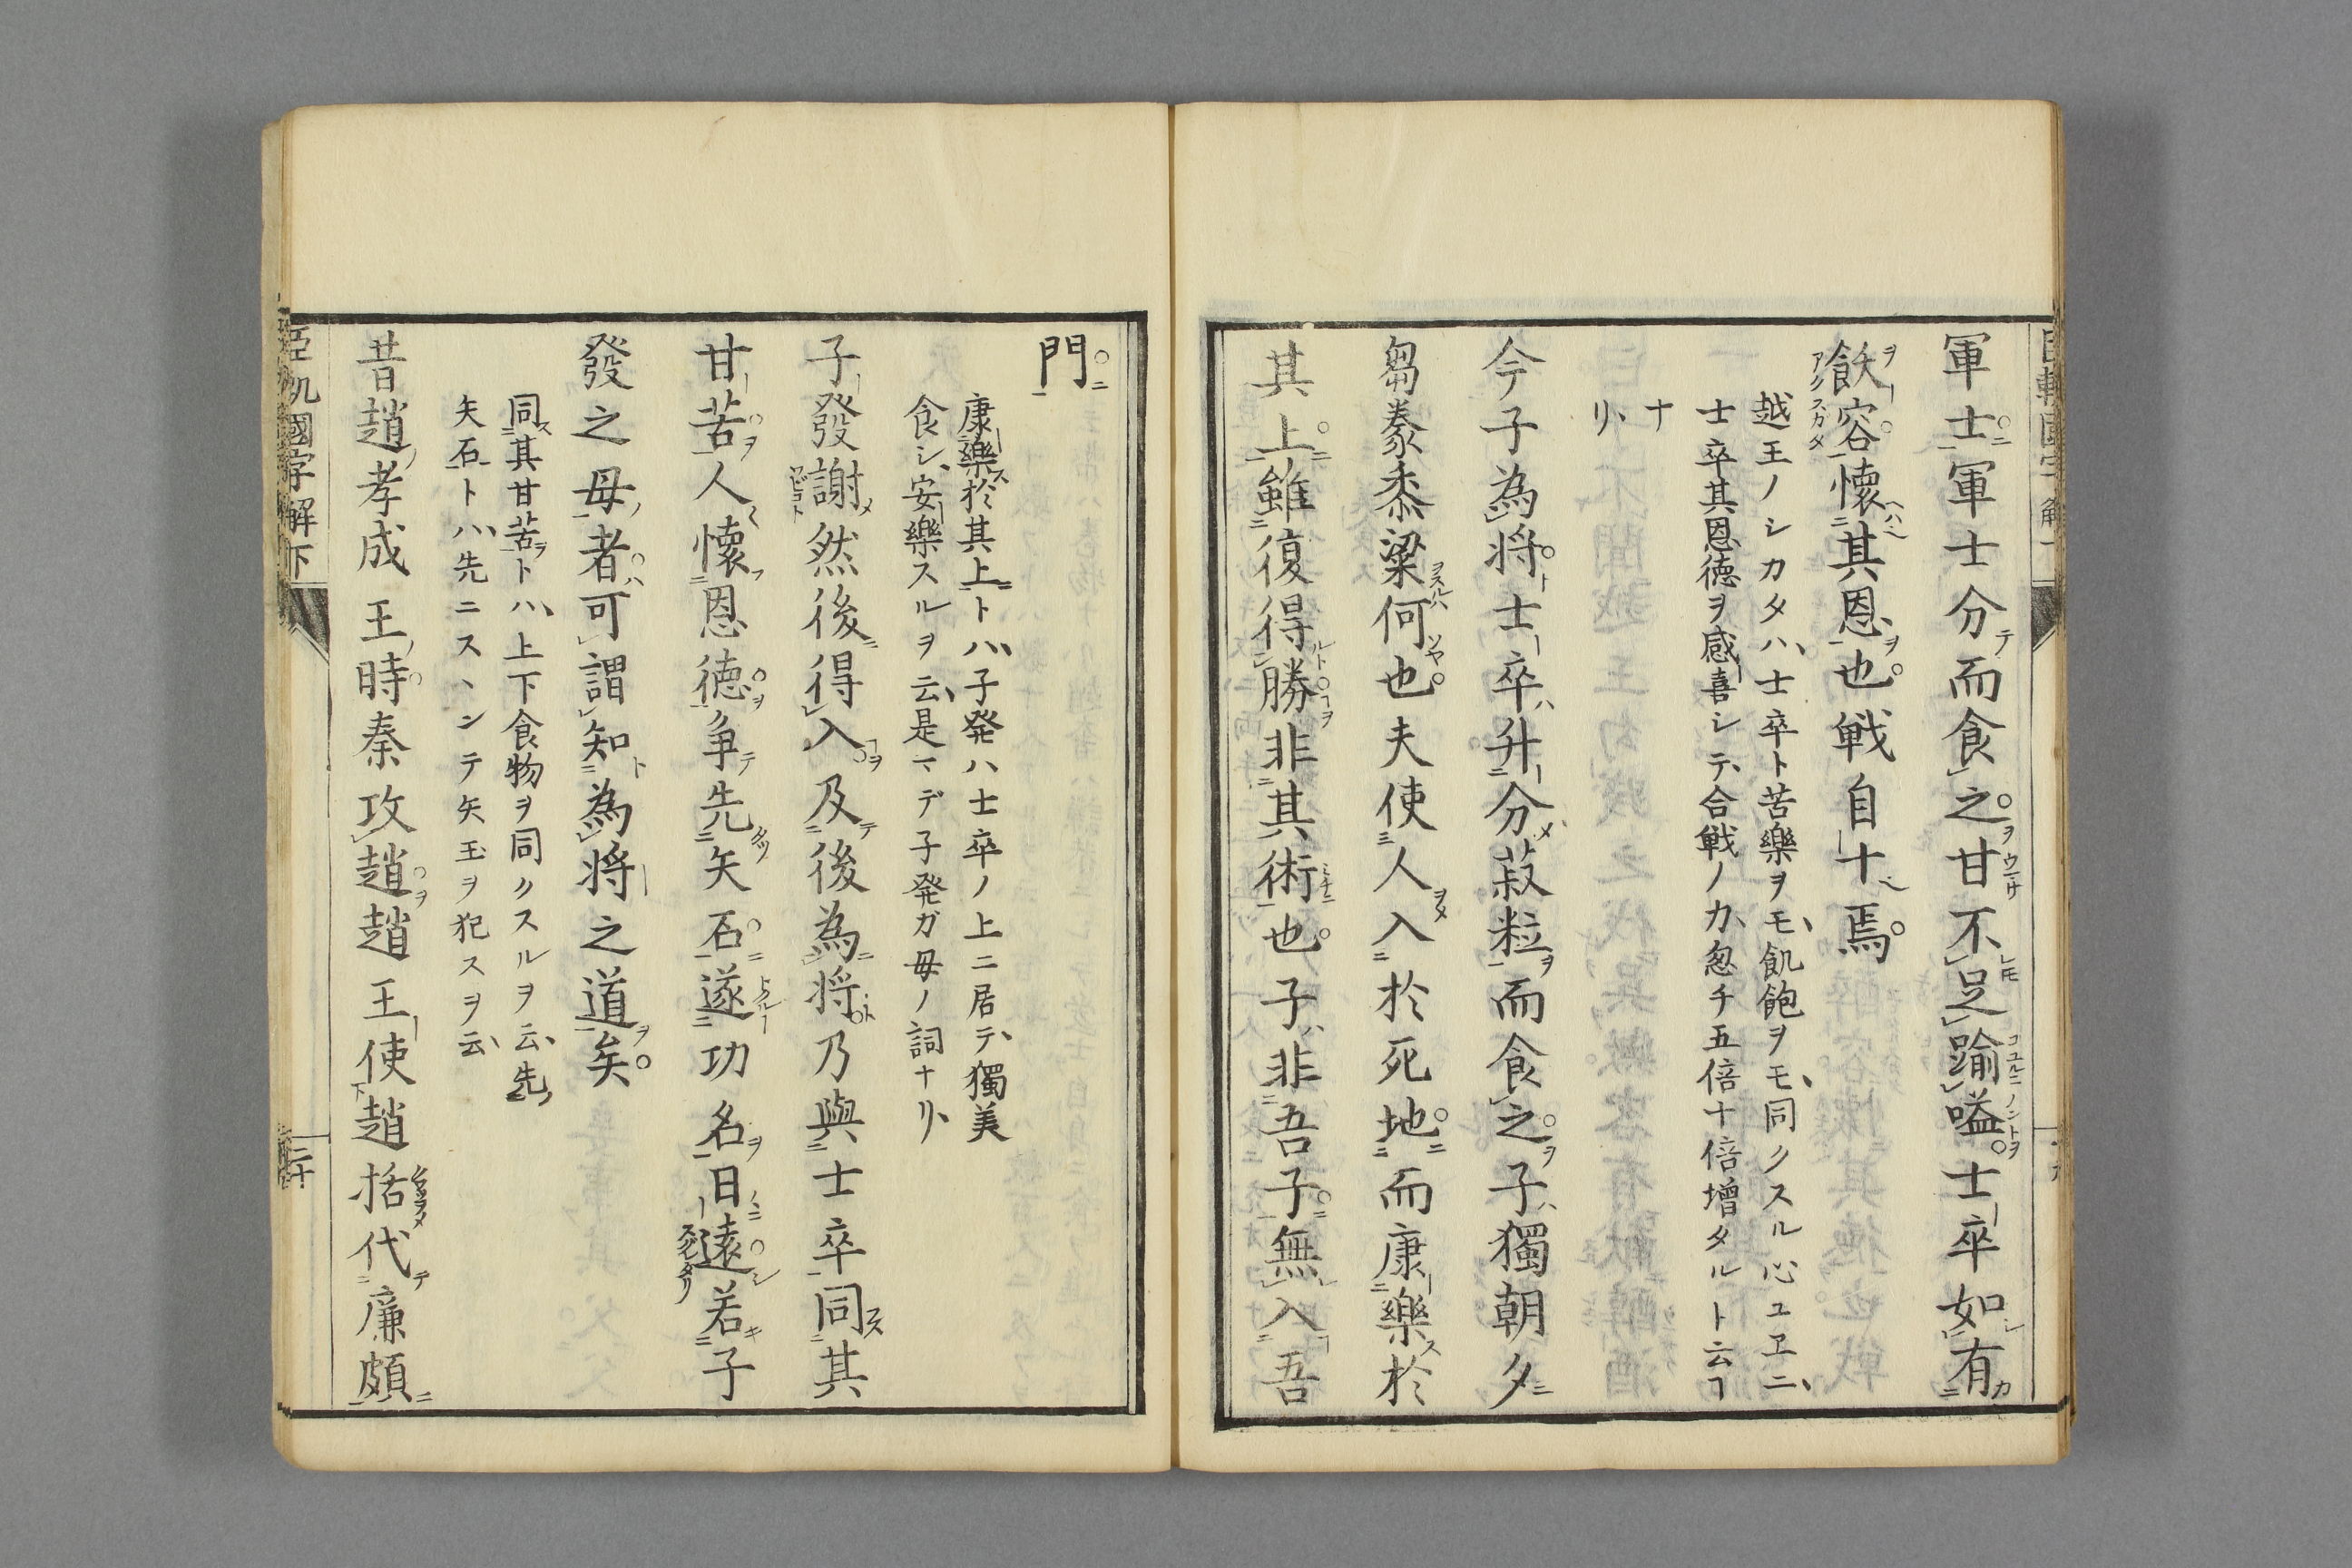 軍士軍士分而食之甘不足踰嗌士卒如有
飫容懷其恩也戦自十焉
越王ノシカタハ、士卒ト苦樂ヲモ、飢飽ヲモ、同クスル心ユヱニ、
士卒其恩徳ヲ感喜シテ、合戦ノ力、忽チ五倍十倍増タルト云ヿ
ナ
リ、
今子為将士卒升分菽粒而食之子獨朝夕
芻豢黍粱何也夫使人入於死地而康樂於
其上雖復得勝非其術也子非吾子無入吾
門
康樂於其上トハ、子発ハ士卒ノ上ニ居テ、獨美
食シ、安樂スルヲ云、是マデ子発ガ母ノ詞ナリ、
子發謝然後得入及後為将乃與士卒同其
甘苦人懷恩徳争先矢石遂功名日遠若子
發之母者可謂知為将之道矣
同其甘苦トハ、上下食物ヲ同クスルヲ云、先
矢石トハ、先ニスヽンテ矢玉ヲ犯スヲ云、
昔趙孝成王時秦攻趙趙王使趙括代廉頗
臣軌國字解下
三十